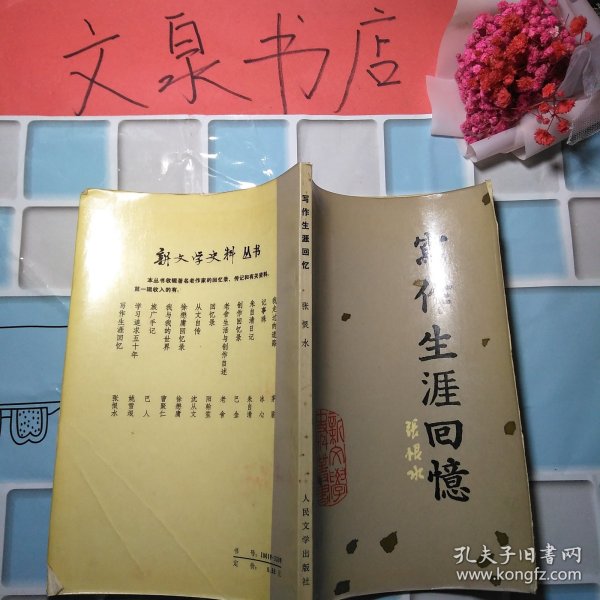 文泉书店
新文学史料丛书
本丛书收辑著名老作家的回忆录、传记和有关资料,
第一辑收入的有:
我走过的道路 茅盾
记事珠 冰心
朱自清日记 朱自清
创作回忆录 巴金
老舍生活与创作自述 老舍
回忆录 阳翰笙
从文自传 沈从文
徐懋庸回忆录 徐懋庸
我与我的世界 曹聚仁
旅广手记 巴人
学习追求五十年 姚雪垠
写作生涯回忆 张恨水
书号:10019·
定价:
写作生涯回忆
张恨水
人民文学出版社
写作生涯回憶
張恨水
新文學史料叢書
孔夫子旧书网
www.kongfz.com